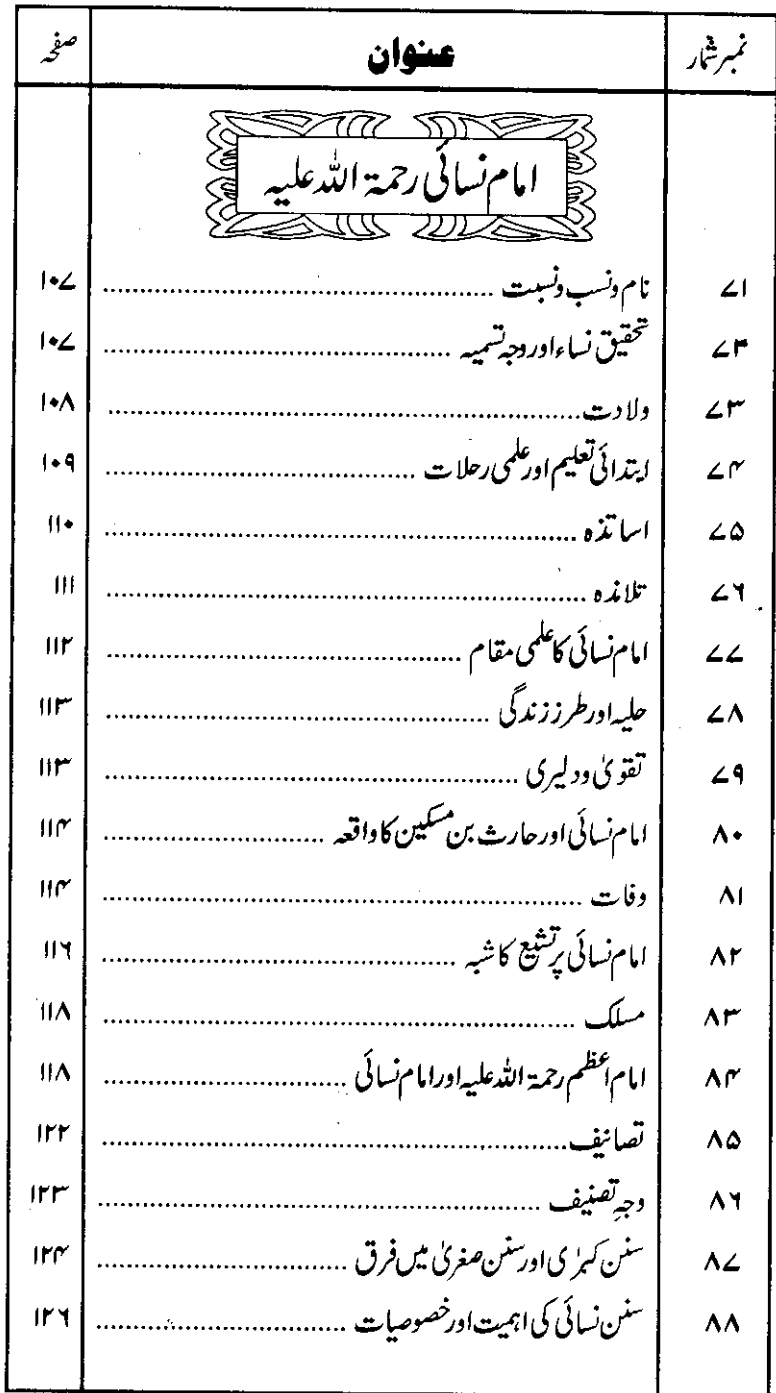 نمبر شمار عنوان صفحہ
امام نسائی رحمۃ اللہ علیہ
۷۱ نام ونسب ونسبت ........ ۱۰۷
۷۳ تحقیق نساء اور وجہ تسمیہ ........ ۱۰۷
۷۳ ولادت ........ ۱۰۸
۷۴ ابتدائی تعلیم اور علمی رحلات ........ ۱۰۹
۷۵ اساتذہ ........ ۱۱۰
۷۶ تلاندہ ........ ۱۱۱
۷۷ امام نسائی کا علمی مقام ........ ۱۱۲
۷۸ حلیہ اور طرز زندگی ........ ۱۱۳
۷۹ تقویٰ ودلیری ........ ۱۱۳
۸۰ امام نسائی اور حارث بن مسکین کا واقعہ ........ ۱۱۴
۸۱ وفات ........ ۱۱۴
۸۲ امام نسائی پر تشیع کا شبہ ........ ۱۱۶
۸۳ مسلک ........ ۱۱۸
۸۴ امام اعظم رحمۃ اللہ علیہ اور امام نسائی ........ ۱۱۸
۸۵ تصانیف ........ ۱۲۲
۸۶ وجہِ تصنیف ........ ۱۲۳
۸۷ سنن کبرٰی اور سنن صغریٰ میں فرق ........ ۱۲۴
۸۸ سنن نسائی کی اہمیت اور خصوصیات ........ ۱۲۶